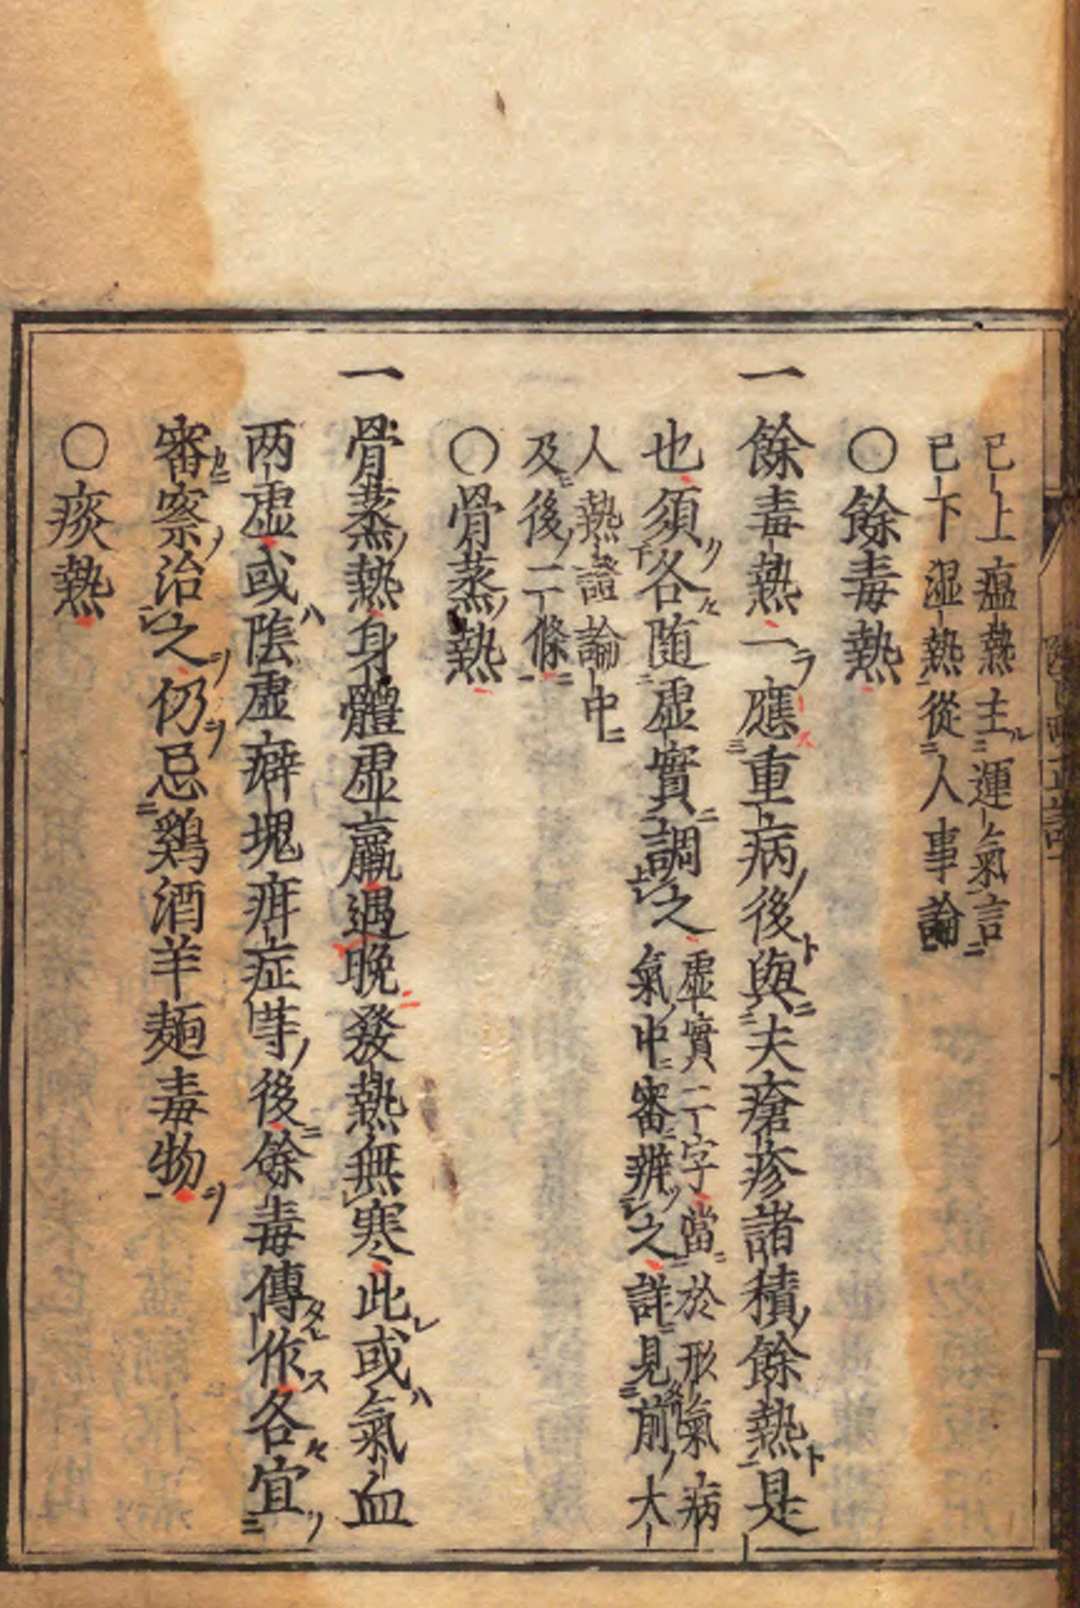 已上瘟熱主運氣言
已下湿熱從人事論
〇餘毒熱
一餘毒熱一應重病後與夫瘡疹諸積餘熱是
也須各随虚實調之虚實二字當於形氣病
氣中審辨之詳見前大
人熱證論中
及後二條
〇骨蒸熱
一骨蒸熱身體虚羸遇晚發熱無寒此或氣血
两虚或陰虚癖塊疳症䓁後餘毒傳作各宜
審察治之仍忌鷄酒羊麺毒物
〇痰熱